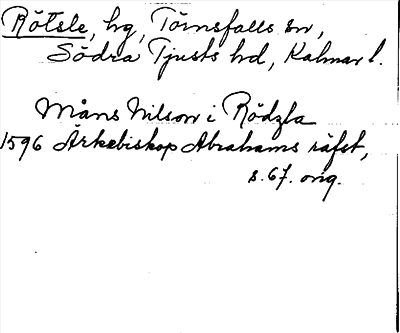 Rötsle, hg, Törnsfalls sn,
Södra Tjusts hd, Kalmar l.
Måns Nilson i Rödzla
1596 Ärkebiskop Abrahams räfst,
s. 67. orig.